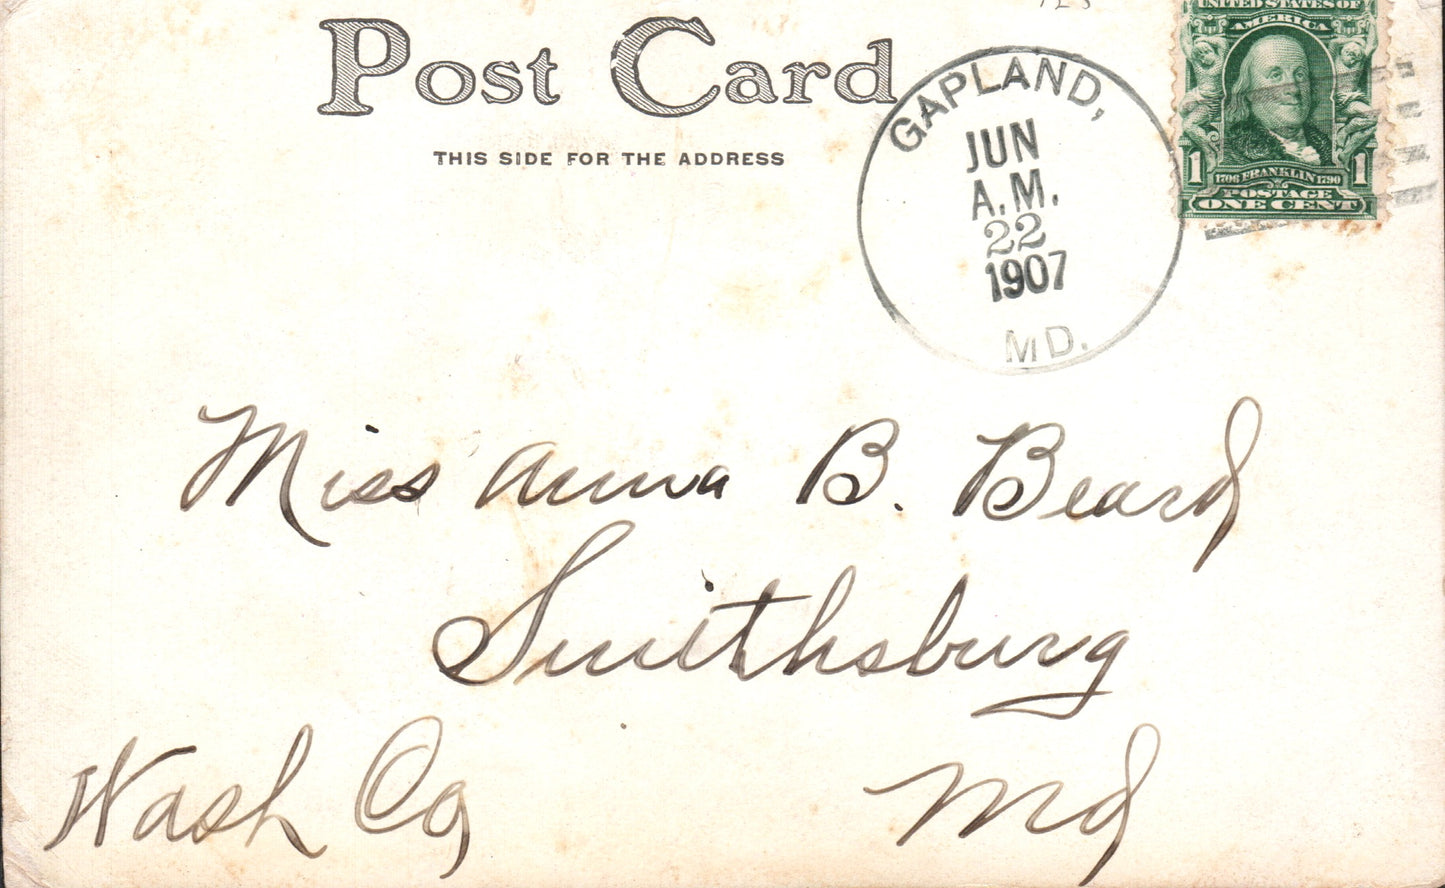 Post Card
THIS SIDE FOR THE ADDRESS
GAPLAND,
JUN
A.M.
22
1907
MD.
UNITED STATES OF
AMERICA
1 1
1706 FRANKLIN 1790
POSTAGE
ONE CENT
Miss Anna B. Beard
Smithsburg
Wash Co
Md